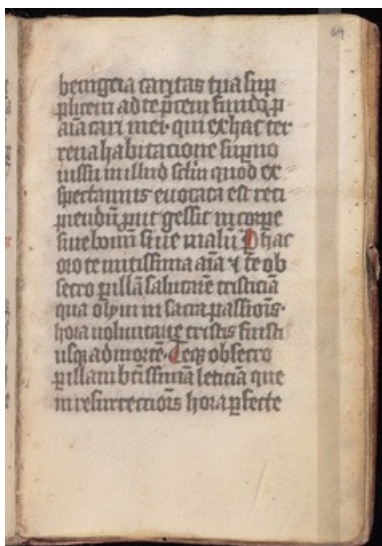 64
benigna caritas tua sup
plicem ad te p̄cem fundo p̱
aīa cari mei · qui ex hac ter
rena habitacione sup̄no
iussu in illud sc̄lm quod ex
spectamus euocata est reci
piendū put gessit in corpe
siue bonū siue malū P hac
oro te mitissima aīa ⁊ te ob
secro p̱ illā salutarē tristiciā
qua olim in sacra passiōis ·
hora uoluntarie tristis fuisti
usq̄ ad mortē · Teq̄ obsecro
p̱ illam bt̄issimā leticiā que
in resurrectiōis hora p̱fecte